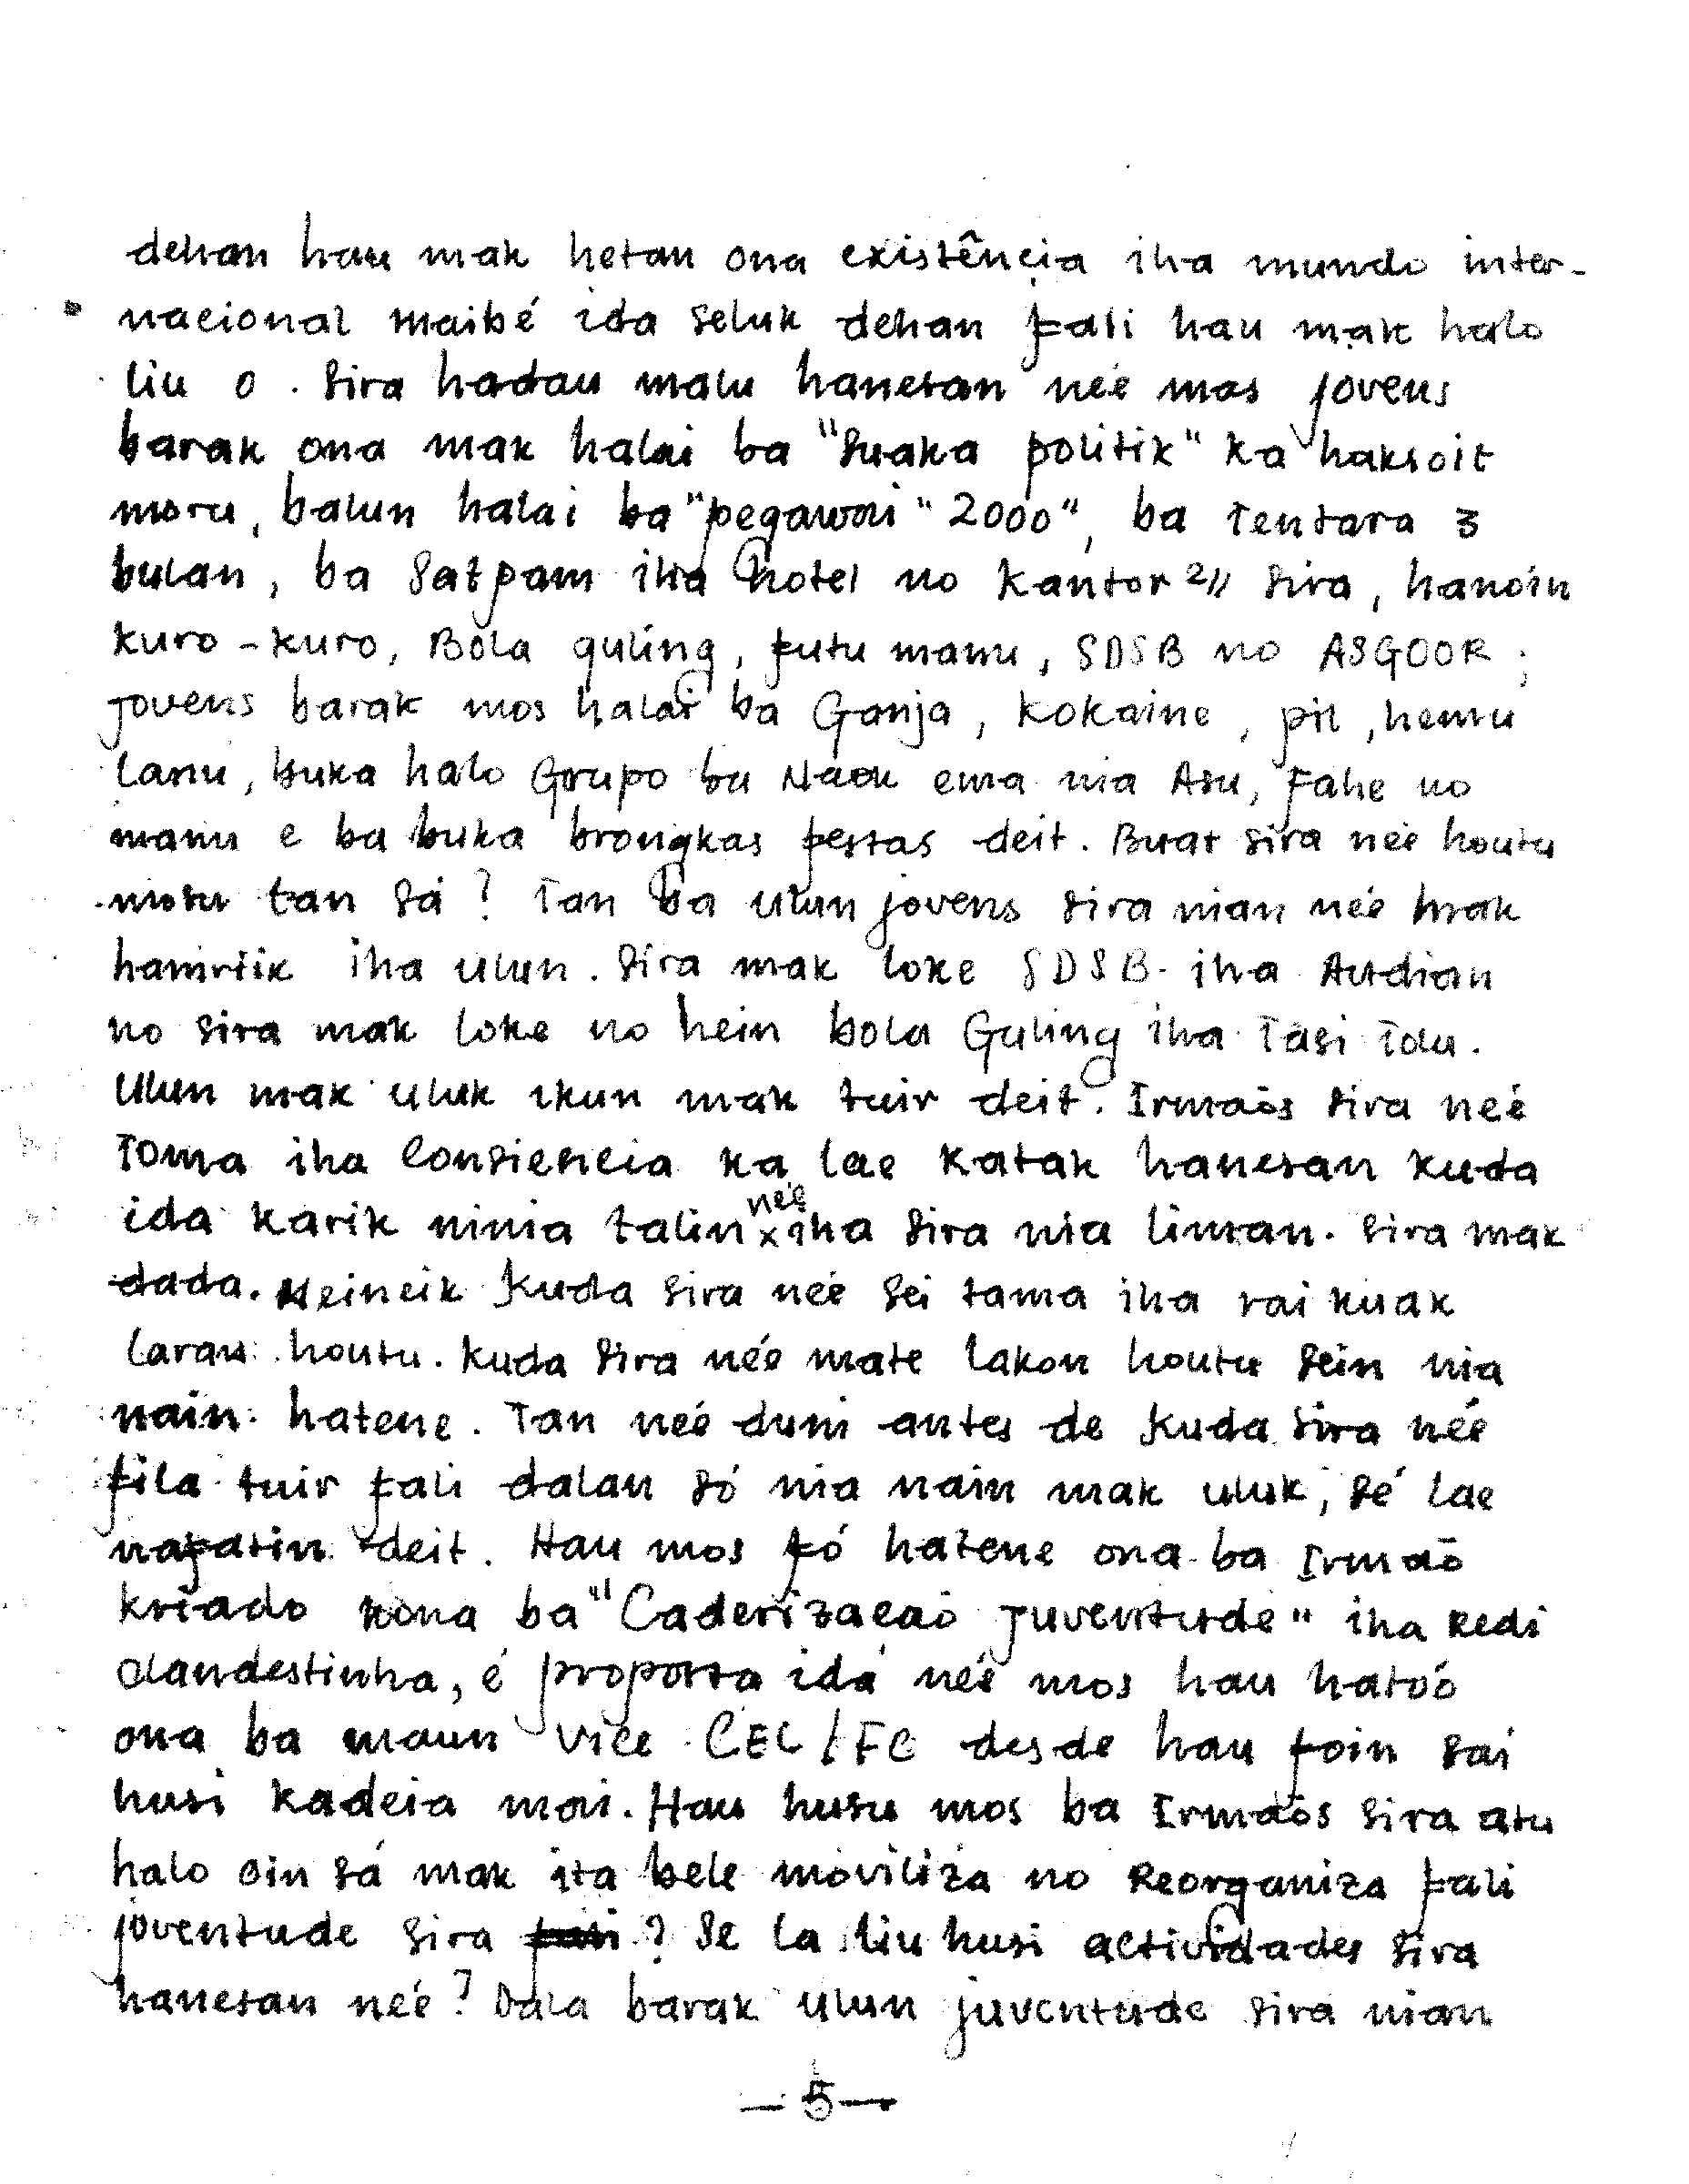 dehan hau mak hetan ona existência iha mundo inter-
nacional maibé ida seluk dehan fali hau mak halo
liu o. Sira hadau malu hanesan neé mas jovens
barak ona mak halai ba "Suaka politik" ka haksoit
moru, balun halai ba "pegawai "2000", ba Tentara 3
bulan, ba Satpam iha hotel no Kantor 2// sira, hanoin
Kuro-Kuro, Bola guling, futu manu, SDSB no ASGOOR;
Jovens barak mos halai ba Ganja, Kokaine, pil, hemu
lanu, buka halo Grupo ba Naok ema nia Asu, Fahe no
manu e ba buka brongkas pestas deit. Buat sira neé houtu
mosu tan sá? Tan ba ulun jovens sira nian neé mak
hamriik iha ulun. Sira mak loke SDSB iha Audian
no sira mak loke no hein bola Guling iha Tasi Tolu.
Ulun mak uluk ikun mak tuir deit. Irmaõs sira neé
Toma iha Consiencia ka lae katak hanesan kuda
ida karik ninia talin neé iha sira nia liman. Sira mak
dada. Neineik Kuda sira neé sei tama iha rai kuak
laran houtu. Kuda sira neé mate lakon houtu sein nia
nain hatene. Tan neé duni antes de Kuda sira neé
fila tuir fali dalan só nia nain mak uluk, sé lae
nafatin deit. Hau mos fó hatene ona ba Irmaõ
kriado kona ba "Caderizacaõ Juventude" iha Redi
Clandestinha, é proposta ida neé mos hau hatoó
ona ba maun Vice CEL/FC desde hau foin sai
husi Kadeia mai. Hau husu mos ba Irmaõs sira atu
halo oin sá mak ita bele moviliza no Reorganiza fali
joventude sira ? Se la liu husi actividades sira
hanesan neé? Dala barak ulun juventude sira nian
— 5 —